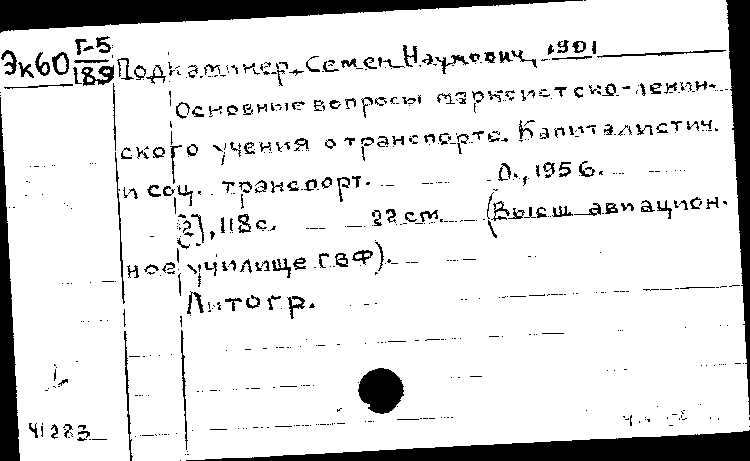 Эк60 Г-5
189
Подкаминер, Семен Наумович, 1901
Основные вопросы марксистско-ленин-
ского учения о транспорте. Капиталистич.
и соц. транспорт. Л., 1956.
[2], 118 с. 22 см (Высш авиацион-
ное училище ГВФ).
Литогр.
41283